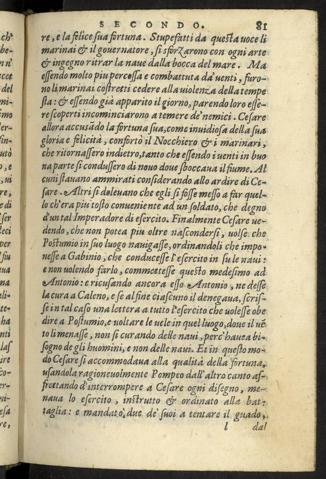 SECONDO. 81
re, e la felice sua fortuna. Stupefatti da questa voce li
marinai & il governatore, si sforzarono con ogni arte
& ingegno ritrar la naue dalla bocca del mare. Ma
essendo molto piu percossa e combattuta da' uenti, furo-
no li marinai costretti cedere alla uiolenza della tempe
sta: & essendo già apparito il giorno, parendo loro esse-
re scoperti incominciarono a temere de' nemici. Cesare
allora accusãdo la fortuna sua, come inuidiosa della sua
gloria e felicità, confortò il Nocchiero & i marinari,
che ritornassero indietro, tanto che essendo i uenti in buo
na parte si condussero di nouo doue sboccaua il fiume. Al
cuni stauano ammirati considerando allo ardire di Ce-
sare. Altri si dolevano che egli si fosse messo a far quel-
lo ch'era piu tosto conueniente ad un soldato, che degno
d'un tal Imperadore di esercito. Finalmente Cesare ue-
dendo, che non potea piu oltre nascondersi, uolse che
Postumio in suo luogo nauigasse, ordinandoli che impo-
nesse a Gabinio, che conducesse l'esercito in su le naui:
e non uolendo farlo, commettesse questo medesimo ad
Antonio: e ricusando ancora esso Antonio, ne desse
la cura a Caleno, e se al fine ciascuno il denegaua, scris-
se in tal caso una lettera a tutto l'esercito che uolesse obe
dire a Postumio, e uoltare le uele in quel luogo, doue il uẽ
to li menasse, non si curando delle naui, perc'hauea bi-
sogno de gli huomini, e non delle naui. Et in questo mo-
do Cesare si accommodaua alla qualità della fortuna,
usandola ragioneuolmente Pompeo dall'altro canto af-
frettando d'interrompere a Cesare ogni disegno, me-
naua lo esercito, instrutto & ordinato alla bat-
taglia: e mandato, due de' suoi a tentare il guado,
l dal